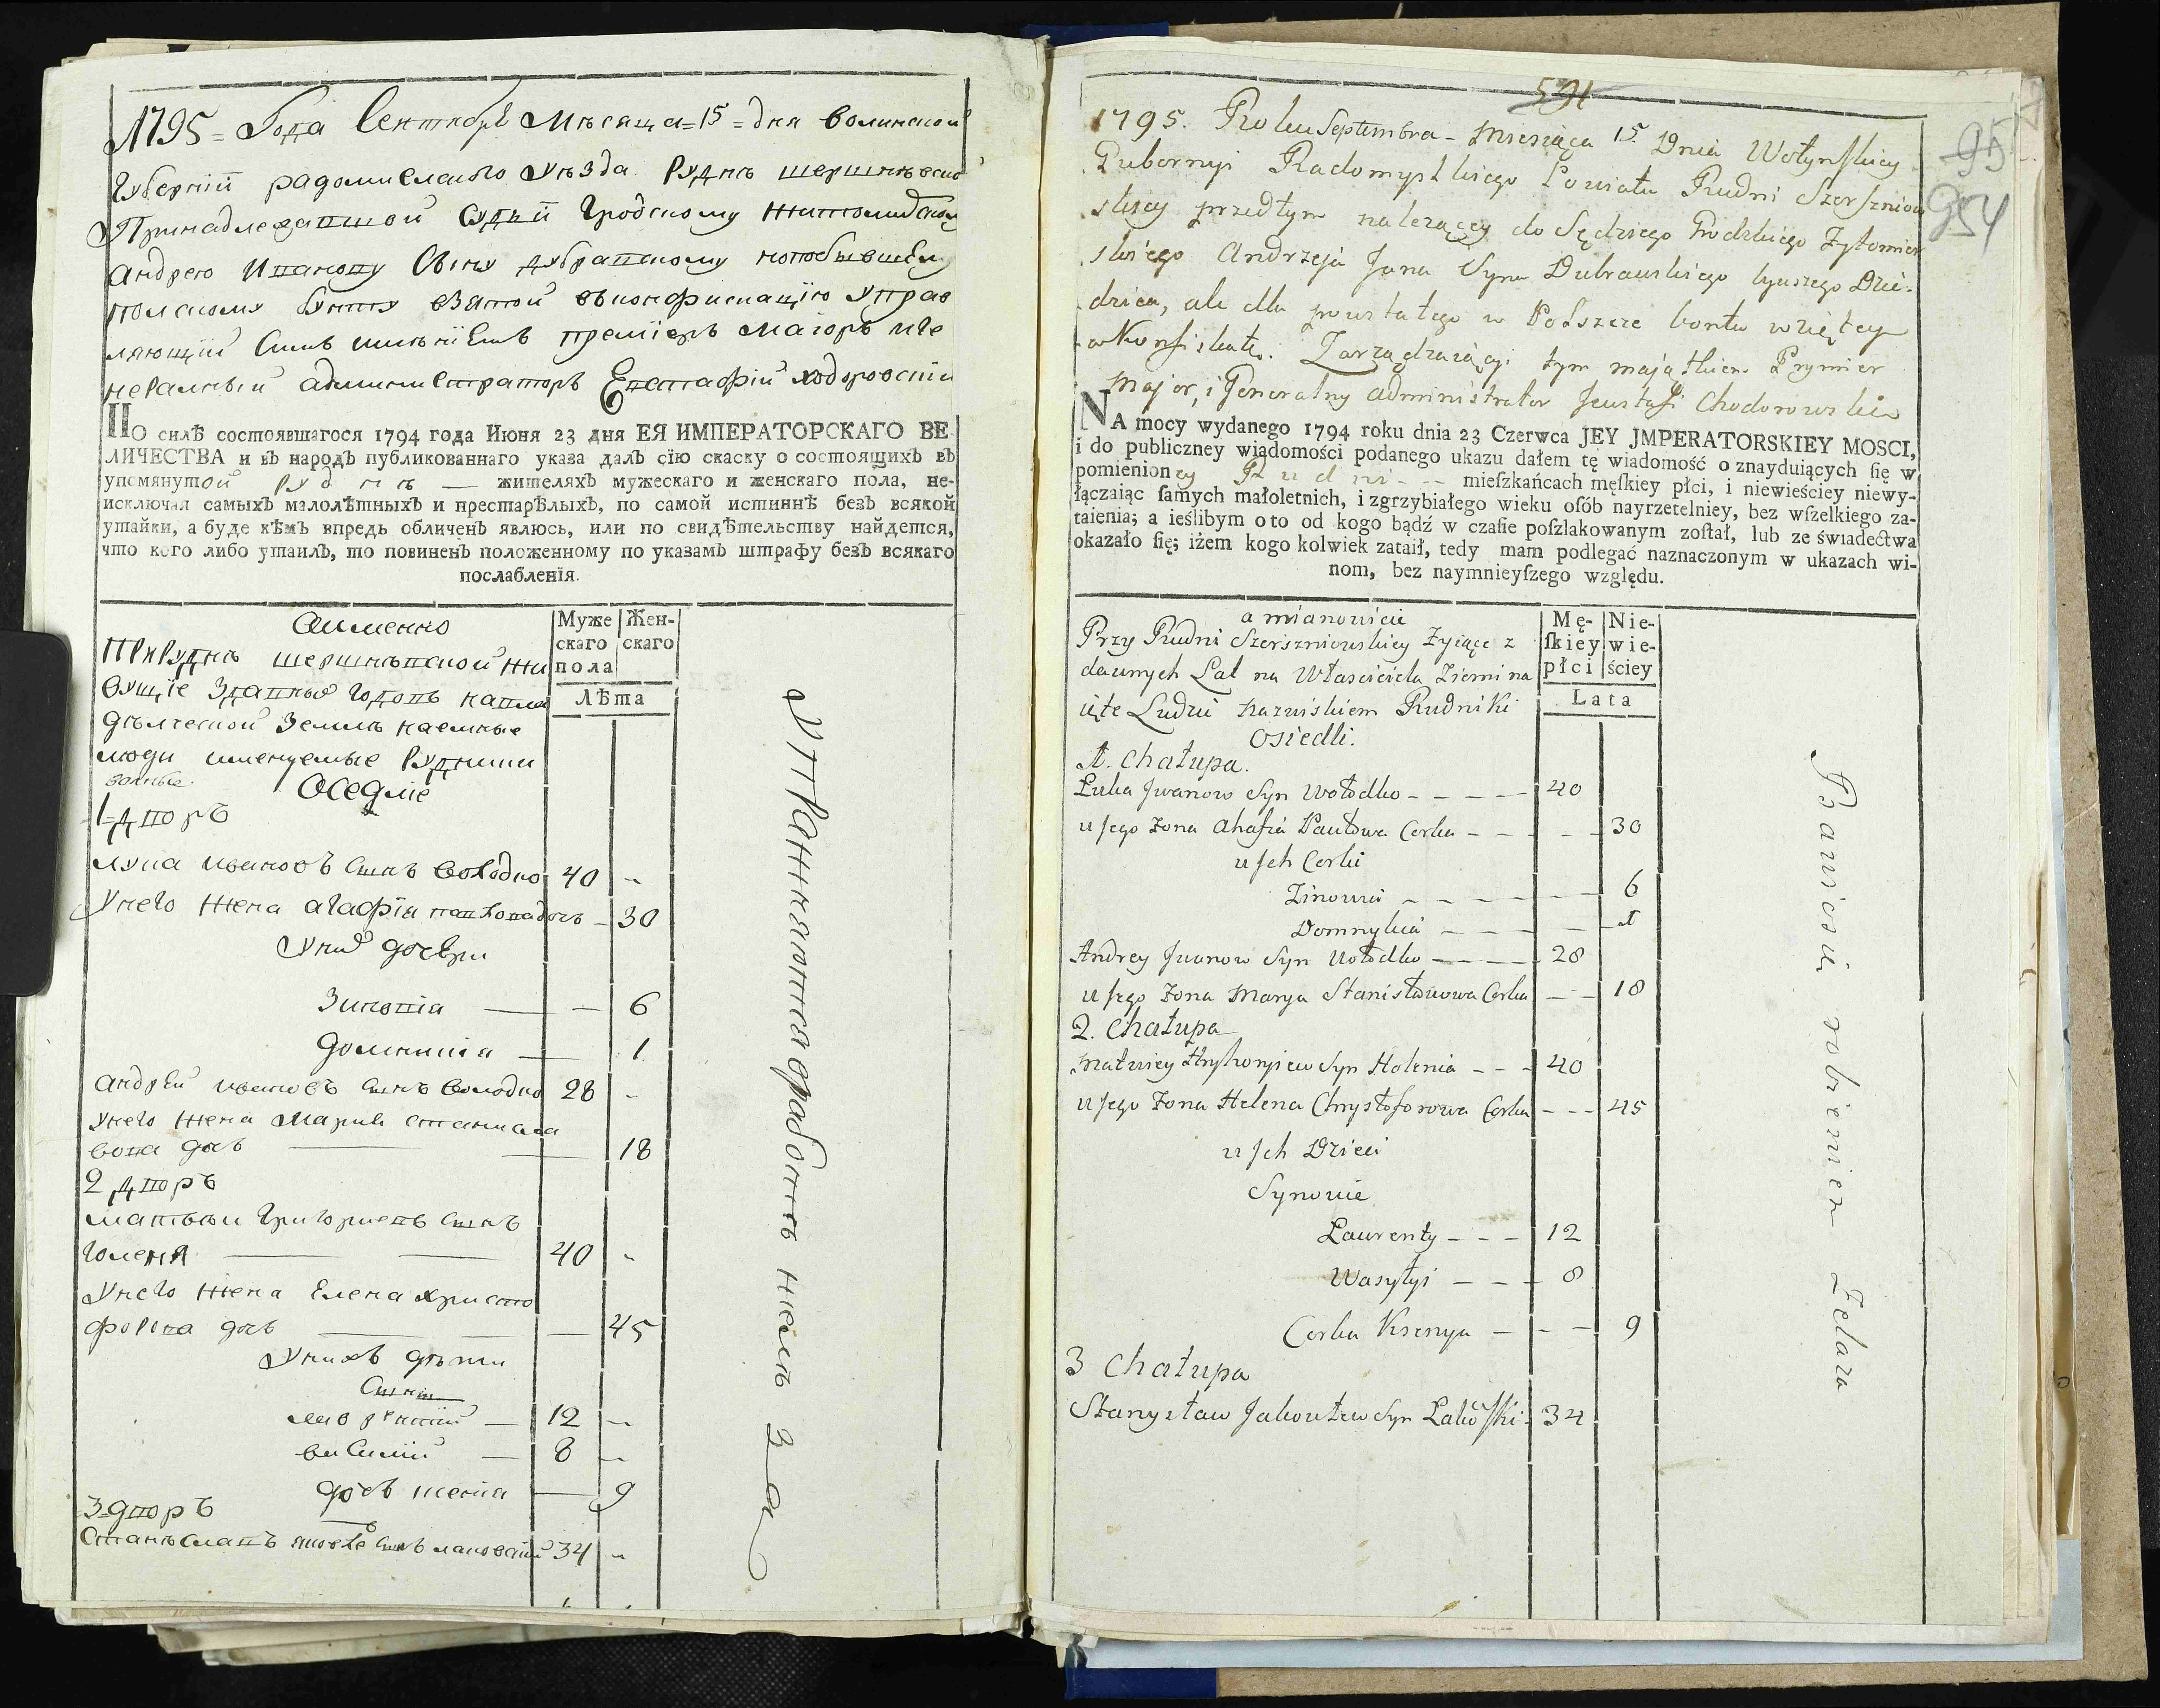 1795 = Года Сентябрь Мѣсяца = 15 = дня волинской
Губернїй радомисльского уѣзда Руднѣ шершнѣвской
Принадлежавшой Судьи Гродскому Житомирскому
андрею Иванову Сыну дубравскому
полскому бунту взятой въ конфискацїю Управ
ляющїй Симъ имѣнїемъ премїеръ Маїоръ и ге
неральный администраторъ Евстафїй ходоровскїй
ПО силѣ состоявшагося 1794 года Июня 23 дня ЕЯ ИМПЕРАТОРСКАГО ВЕ
ЛИЧЕСТВА и въ народъ публикованнаго указа далъ сїю скаску о состоящихъ въ
упомянутой Руднѣ — жителяхъ мужескаго и женскаго пола, не-
исключая самыхъ малолѣтныхъ и престарѣлыхъ, по самой истиннѣ безъ всякой
утайки, а буде кѣмъ впредь обличенъ явлюсь, или по свидѣтельству найдется,
что кого либо утаилъ, то повиненъ положенному по указамъ штрафу безъ всякаго
послабленїя.
Аименно
Муже
скаго
пола
Жен-
скаго
Лѣта
При Руднѣ шершнѣвской жи
вущїе здавныхъ годовъ навла
дѣлческой Землѣ наемные
люди именуемые Рудники
Оседлїе
1-дворъ
лука ивановъ Сынъ володко 40 -
Унего жена агафїя павлова дочь - 30
Унихъ дочери
Зиновїя — — 6
домникїя — 1
андрей ивановъ Сынъ володко 28 -
унего жена Мария станисла
вова дочь — — 18
2 дворъ
матвѣй Григориевъ Сынъ
Голеня — — 40 -
Унего жена Елена христо
форова дочь — — 45
Унихъ дѣти
Сыны
лаврентїй — 12 -
василїй — 8 -
дочь ксенїя — 9
3-дворъ
Станѣславъ яковлевъ Сынъ лаковскїй 34 -
Упражняются работою желѣза
591
95
954
1795. Roku Septembra - Miesiąca 15 Dnia Wołynskiey
Gubernyi Radomyslskiego Powiatu Rudni Szerszniow
skiey przedtym nalezącey do Sędziego Grodzkiego Zytomier
skiego Andrzeja Jana Syna Dubrawskiego byuszego Dzie-
dzica, ale dla powstałego w Polszcze bontu wziętey
w Konfiskatę. Zarządzaiący tym maiątkiem Prymier
Major, i Generalny administrator Jeustafi Chodorowskie
NA mocy wydanego 1794 roku dnia 23 Czerwca JEY JMPERATORSKIEY MOSCI,
i do publiczney wiadomości podanego ukazu dałem tę wiadomość o znayduiących ſię w
pomienioney Rudni - - mieſzkańcach męſkiey płci, i niewieściey niewy-
łączaiąc ſamych małoletnich, i zgrzybiałego wieku oſób nayrzetelniey, bez wſzelkiego za-
taienia; a ieślibym o to od kogo bądź w czaſie poſzlakowanym zoſtał, lub ze świadectwa
okazało ſię; iżem kogo kolwiek zataił, tedy mam podlegać naznaczonym w ukazach wi-
nom, bez naymnieyſzego względu.
a mianowicie
Mę-
ſkiey
płci
Nie-
wie-
ściey
Lata
Przy Rudni Szerszniowskiey Zyiące z
dawnych Lat na Własciciela Ziemi na
ięte Ludzie nazwiskiem Rudniki
Osiedli.
1. Chatupa.
Luka Jwanow Syn Wołodko - - - - - 40
u Jego Zona Ahafia Pawłowa Corka - - - - 30
u Jch Corki
Zinowia - - - - - - 6
Domnykia - - - - - 1
Andrey Jwanow Syn Wołodko - - - - - 28
u Jego Zona Marya Stanisławowa Corka - - 18
2. Chatupa
Matwiey Hryhoryiew Syn Holenia - - - 40
u Jego Zona Helena Chrystoforowa Corka - - - 45
u Jch Dzieci
Synowie
Laurenty - - - 12
Wasylyi - - - 8
Corka Ksenya - - - 9
3 Chatupa
Stanysław Jakowlew Syn Lakowski 34
Bawiesię robieniem Zelaza